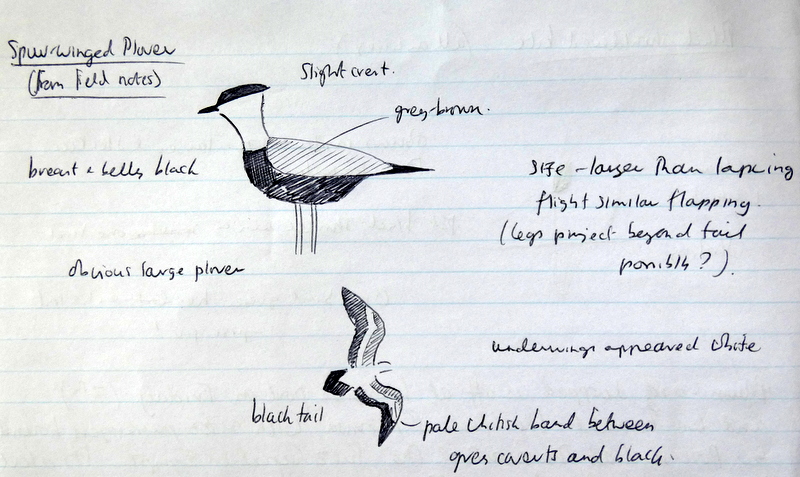 Spur-winged Plover
(from field notes)
slight crest.
grey-brown.
breast & belly black
size - larger than lapwing
flight similar flapping.
(legs project beyond tail
possibly?).
obvious large plover
underwings appeared white
black tail
pale whitish band between
grey coverts and black.